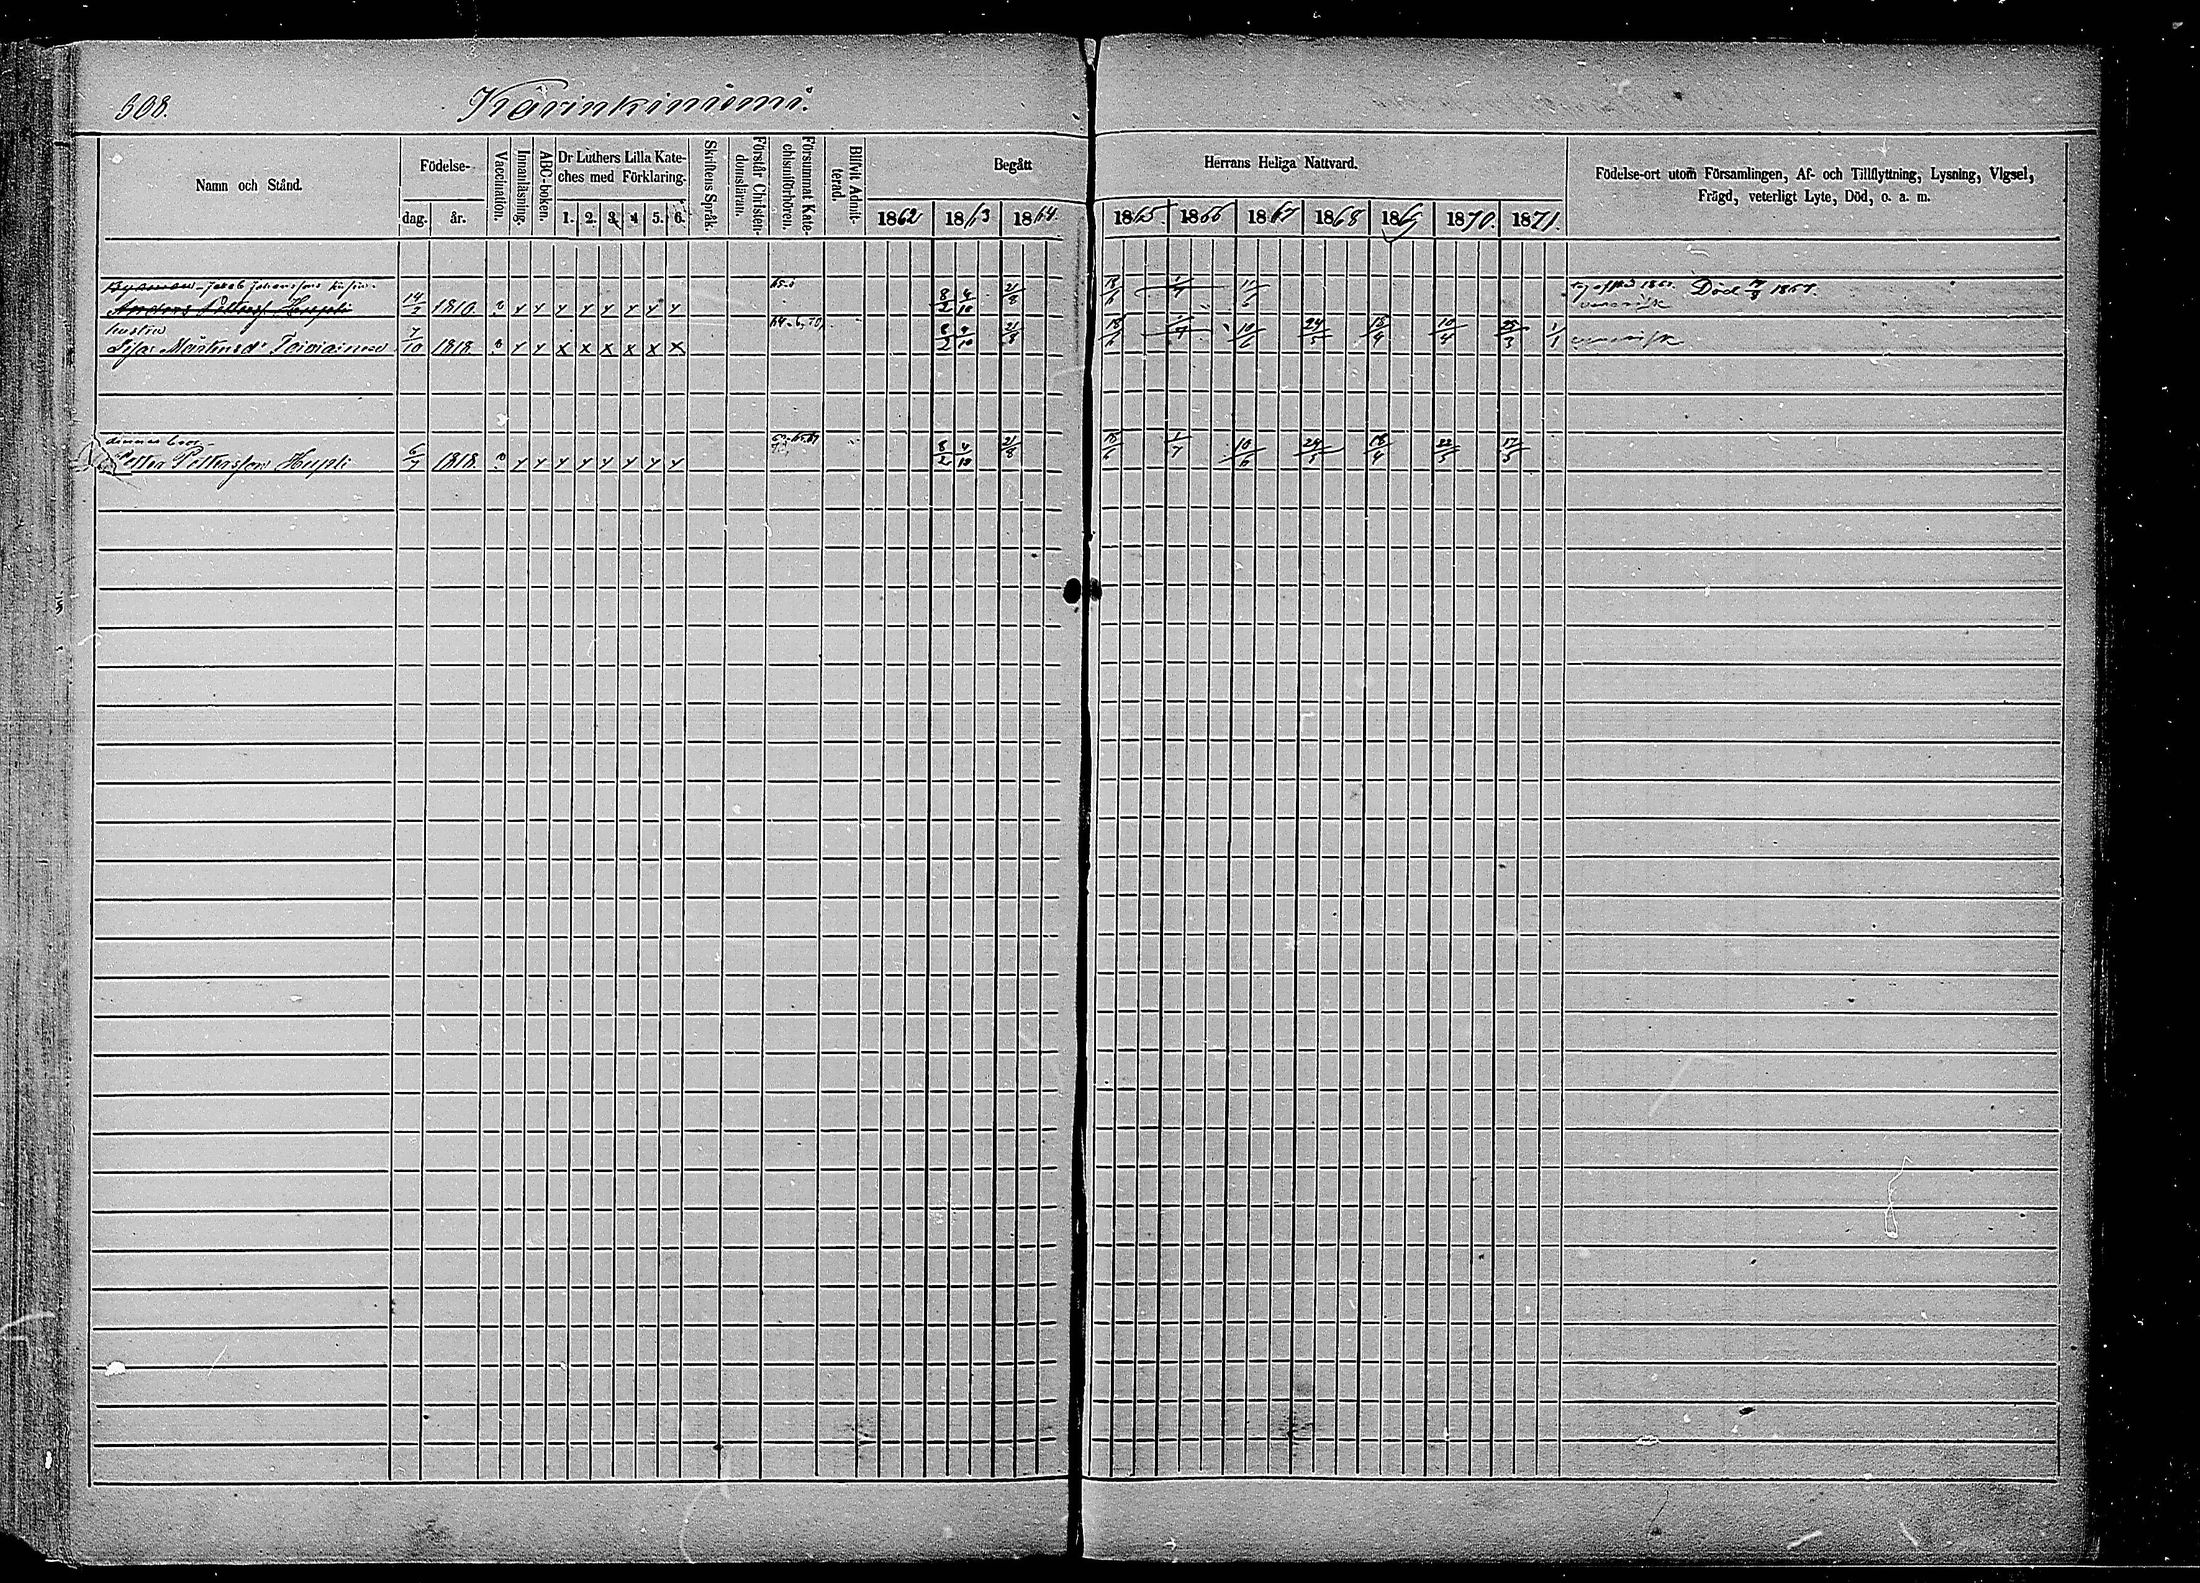 608.
Karinkiniemi.
Namn och Stånd.
Födelse-
dag.
år.
Vaccination.
Innanläsning.
ABC-boken.
Dr Luthers Lilla Kate-
ches med Förklaring.
1. 2. 3. 4 5. 6.
Skriftens Språk.
Förstår Christen-
domsläran.
Försummat Kate-
chismiförhören.
Blifvit Admit-
terad.
Begått
Herrans Heliga Nattvard.
1862 1863 1864
1865 1866 1867 1868 1869 1870. 1871.
Födelse-ort utom Församlingen, Af- och Tillflyttning, Lysning, Vigsel,
Frägd, veterligt Lyte, Död, o. a. m.
Jakob Johanssons
Anders Petterss Huppli 14/2 1810. y y y y y y y y 8/2 4/10 21/8 18/6 1/7 Död 1867.
hustru
Lisa Mårtensdr Toiviainen 7/10 1818. y y x x x x x x 8/2 4/10 21/8 18/6 10/6 24/5 18/4 10/4 25/3 1/1
dennes bror
Petter Pettersson Huppli 6/7 1818. y y y y y y y y 8/2 4/10 21/8 18/6 1/7 10/6 24/5 18/4 22/5 17/5